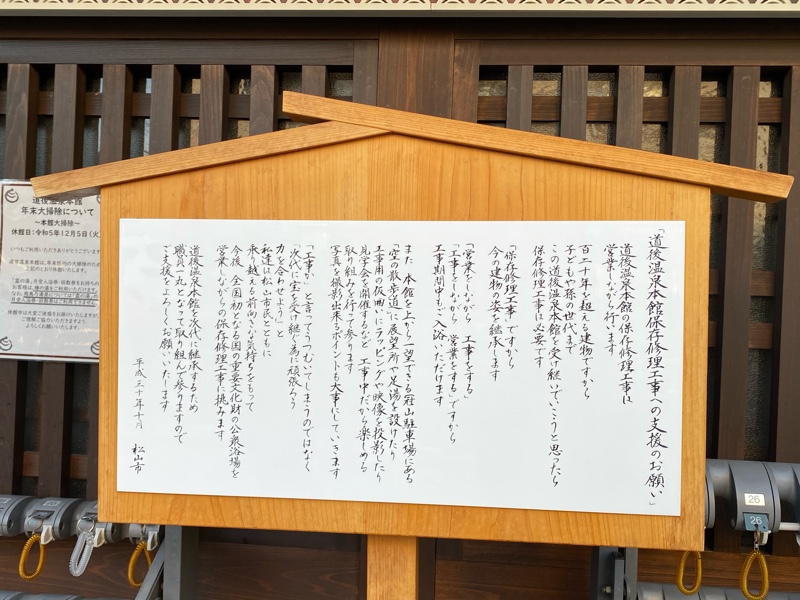 「道後温泉本館保存修理工事への支援のお願い」
道後温泉本館の保存修理工事は
営業しながら行います
百二十年を超える建物ですから
子どもや孫の世代まで
この道後温泉本館を受け継いでいこうと思ったら
保存修理工事は必要です
「保存修理工事」ですから
今の建物の姿を継承します
「営業をしながら 工事をする」
「工事をしながら 営業をする」ですから
工事期間中もご入浴いただけます
また 本館を上から一望できる冠山駐車場にある
「空の散歩道」に展望所や足場を設けたり
工事用の外囲いにラッピングや映像を投影したり
見学会を開催するなど 工事中だから楽しめる
取り組みを行って参ります
写真を撮影出来るポイントも大事にしていきます
「工事か」と言ってうつむいてしまうのではなく
「次代に宝を受け継ぐ為に頑張ろう
力を合わせよう」と
私達は松山市民とともに
乗り越える前向きな気持ちをもって
今後 全国初となる国の重要文化財の公衆浴場を
営業しながらの保存修理工事に挑みます
道後温泉本館を次代に継承するため
職員一丸となって取り組んで参りますので
ご支援をよろしくお願いいたします
平成三十年十月 松山市
道後温泉本館
年末大掃除について
～本館大掃除～
休館日：令和5年12月5日（火
いつもご利用いただきありがとうございます
26
26